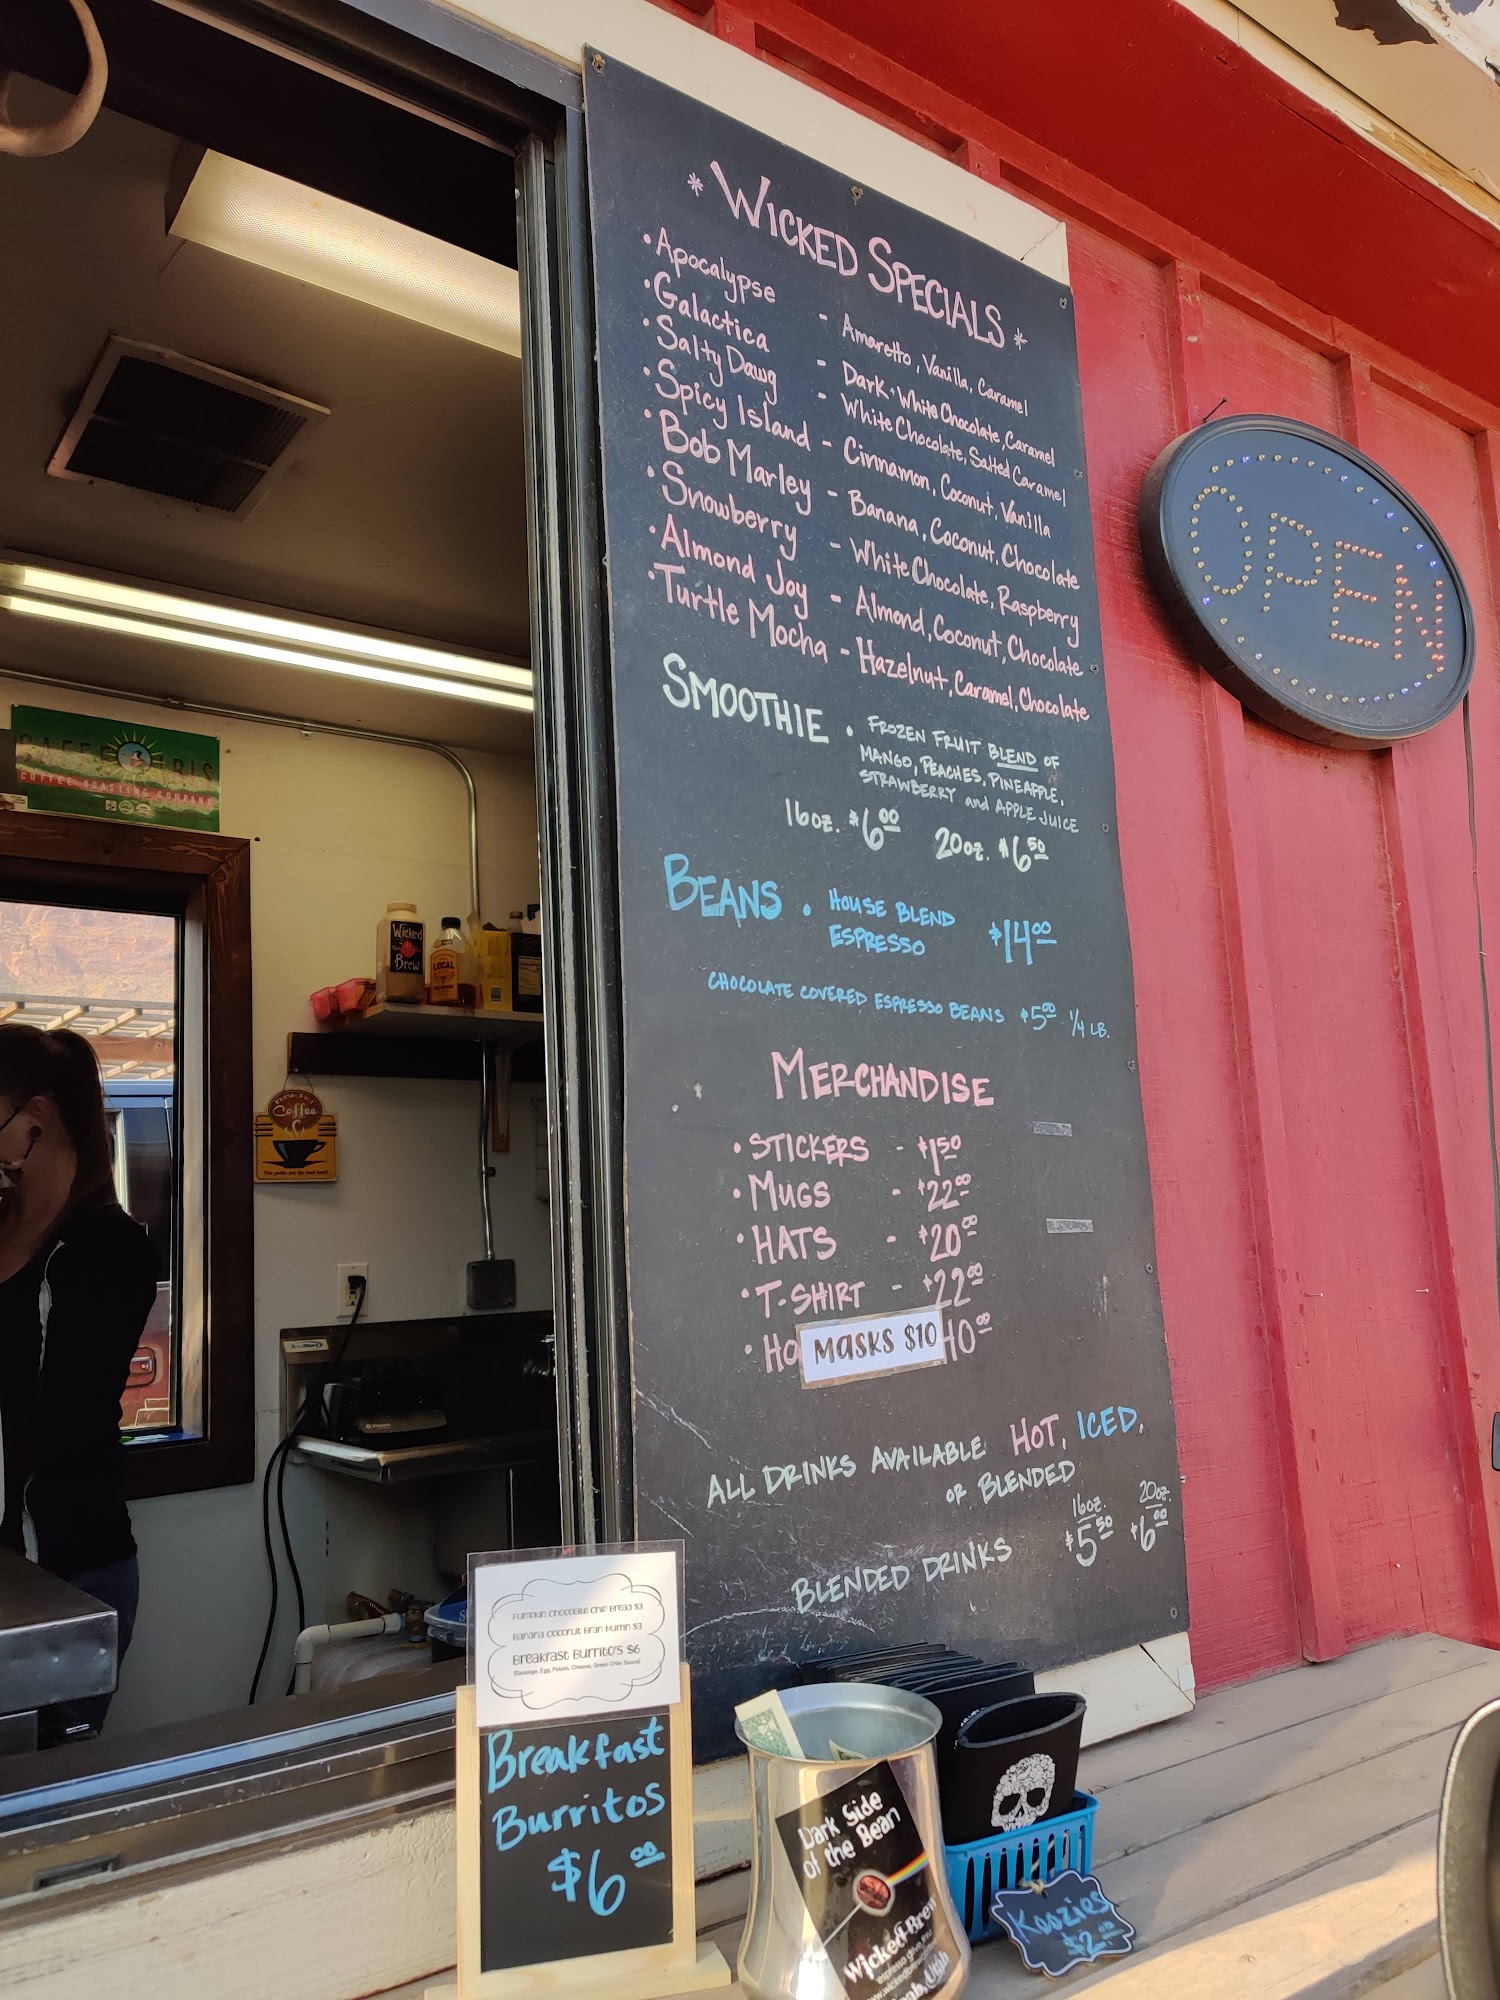 * WICKED SPECIALS *
• Apocalypse - Amaretto, Vanilla, Caramel
• Galactica - Dark + White Chocolate, Caramel
• Salty Dawg - White Chocolate, Salted Caramel
• Spicy Island - Cinnamon, Coconut, Vanilla
• Bob Marley - Banana, Coconut, Chocolate
• Snowberry - White Chocolate, Raspberry
• Almond Joy - Almond, Coconut, Chocolate
• Turtle Mocha - Hazelnut, Caramel, Chocolate
SMOOTHIE • FROZEN FRUIT BLEND OF
MANGO, PEACHES, PINEAPPLE,
STRAWBERRY and APPLE JUICE
16oz. $6.00 20oz. $6.50
BEANS • HOUSE BLEND
ESPRESSO $14.00
CHOCOLATE COVERED ESPRESSO BEANS $5.00 1/4 LB.
MERCHANDISE
• STICKERS - $1.50
• MUGS - $22.00
• HATS - $20.00
• T-SHIRT - $22.00
MASKS $10
ALL DRINKS AVAILABLE HOT, ICED,
OR BLENDED
16oz. 20oz.
BLENDED DRINKS $5.50 $6.00
OPEN
COFFEE ROASTING COMPANY
Wicked
Brew
LOCAL
Coffee
Pumpkin Chocolate Chip Bread $3
Banana Coconut Bran Muffin $3
Breakfast Burrito's $6
(Sausage, Egg, Potato, Cheese, Green Chile Sauce)
Breakfast
Burritos
$6.00
Dark Side
of the Bean
Wicked Brew
Koozies
$2.00